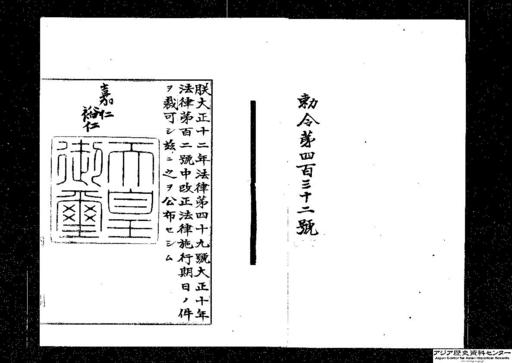 勅令第四百三十二號
朕大正十二年法律第四十九號大正十年
法律第百二號中改正法律施行期日ノ件
ヲ裁可シ玆ニ之ヲ公布セシム
嘉仁
裕仁
天皇
御璽
アジア歴史資料センター
Japan Center for Asian Historical Records